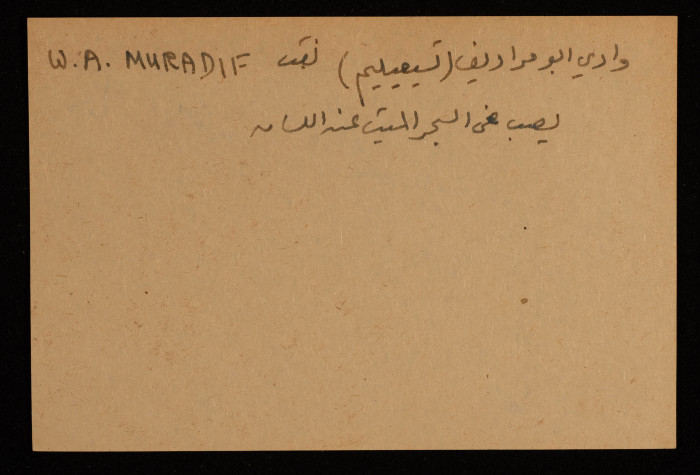 وادي ابو مراديف (تسيعيليم) نقب W. A. MURADIF
يصب في البحر الميت عند اللسان